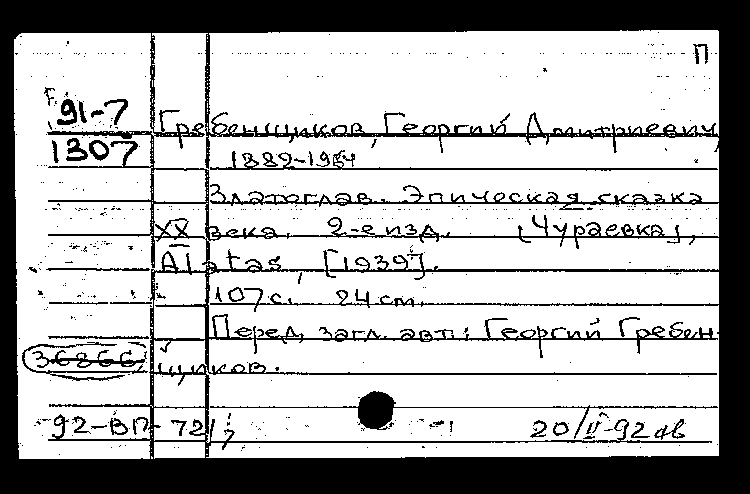 П
91-7
1307
Гребенщиков, Георгий Дмитриевич,
1882-1964
Златоглав. Эпическая сказка
XX века. 2-е изд. [Чураевка],
Alatas, [1939].
107 с. 24 см.
Перед загл. авт.: Георгий Гребен-
щиков.
36866
92-ВП-721
20/V-92